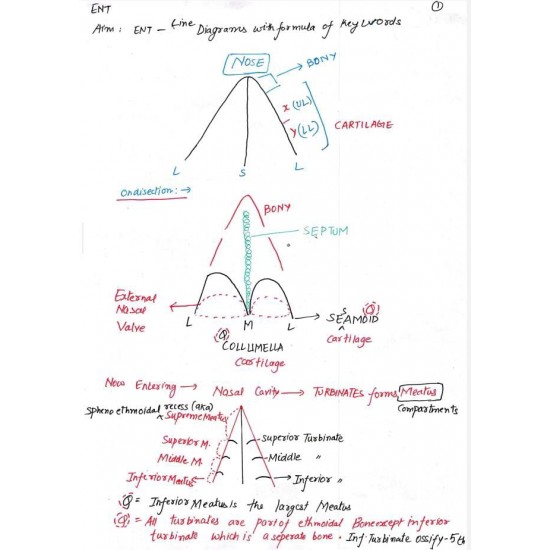 ENT
①
Aim: ENT - Line Diagrams with formula of Key Words
NOSE
BONY
x (UL)
y (LL)
CARTILAGE
L S L
Ondisection: →
BONY
SEPTUM
External Nasal Valve
L M L → SEAMOID (Q)
S
^
Cartilage
(Q)
COLLUMELLA
Cartilage
Now Entering → Nasal Cavity → TURBINATES forms Meatus
Compartments
spheno ethmoidal recess (aka)
Supreme Meatus
Superior M. Superior Turbinate
Middle M. Middle "
Inferior Meatus → Inferior "
(Q) = Inferior Meatus is the largest Meatus
(Q) = All turbinates are part of ethmoidal Bone except inferior
turbinate which is a seperate bone. Inf. Turbinate ossify - 5th